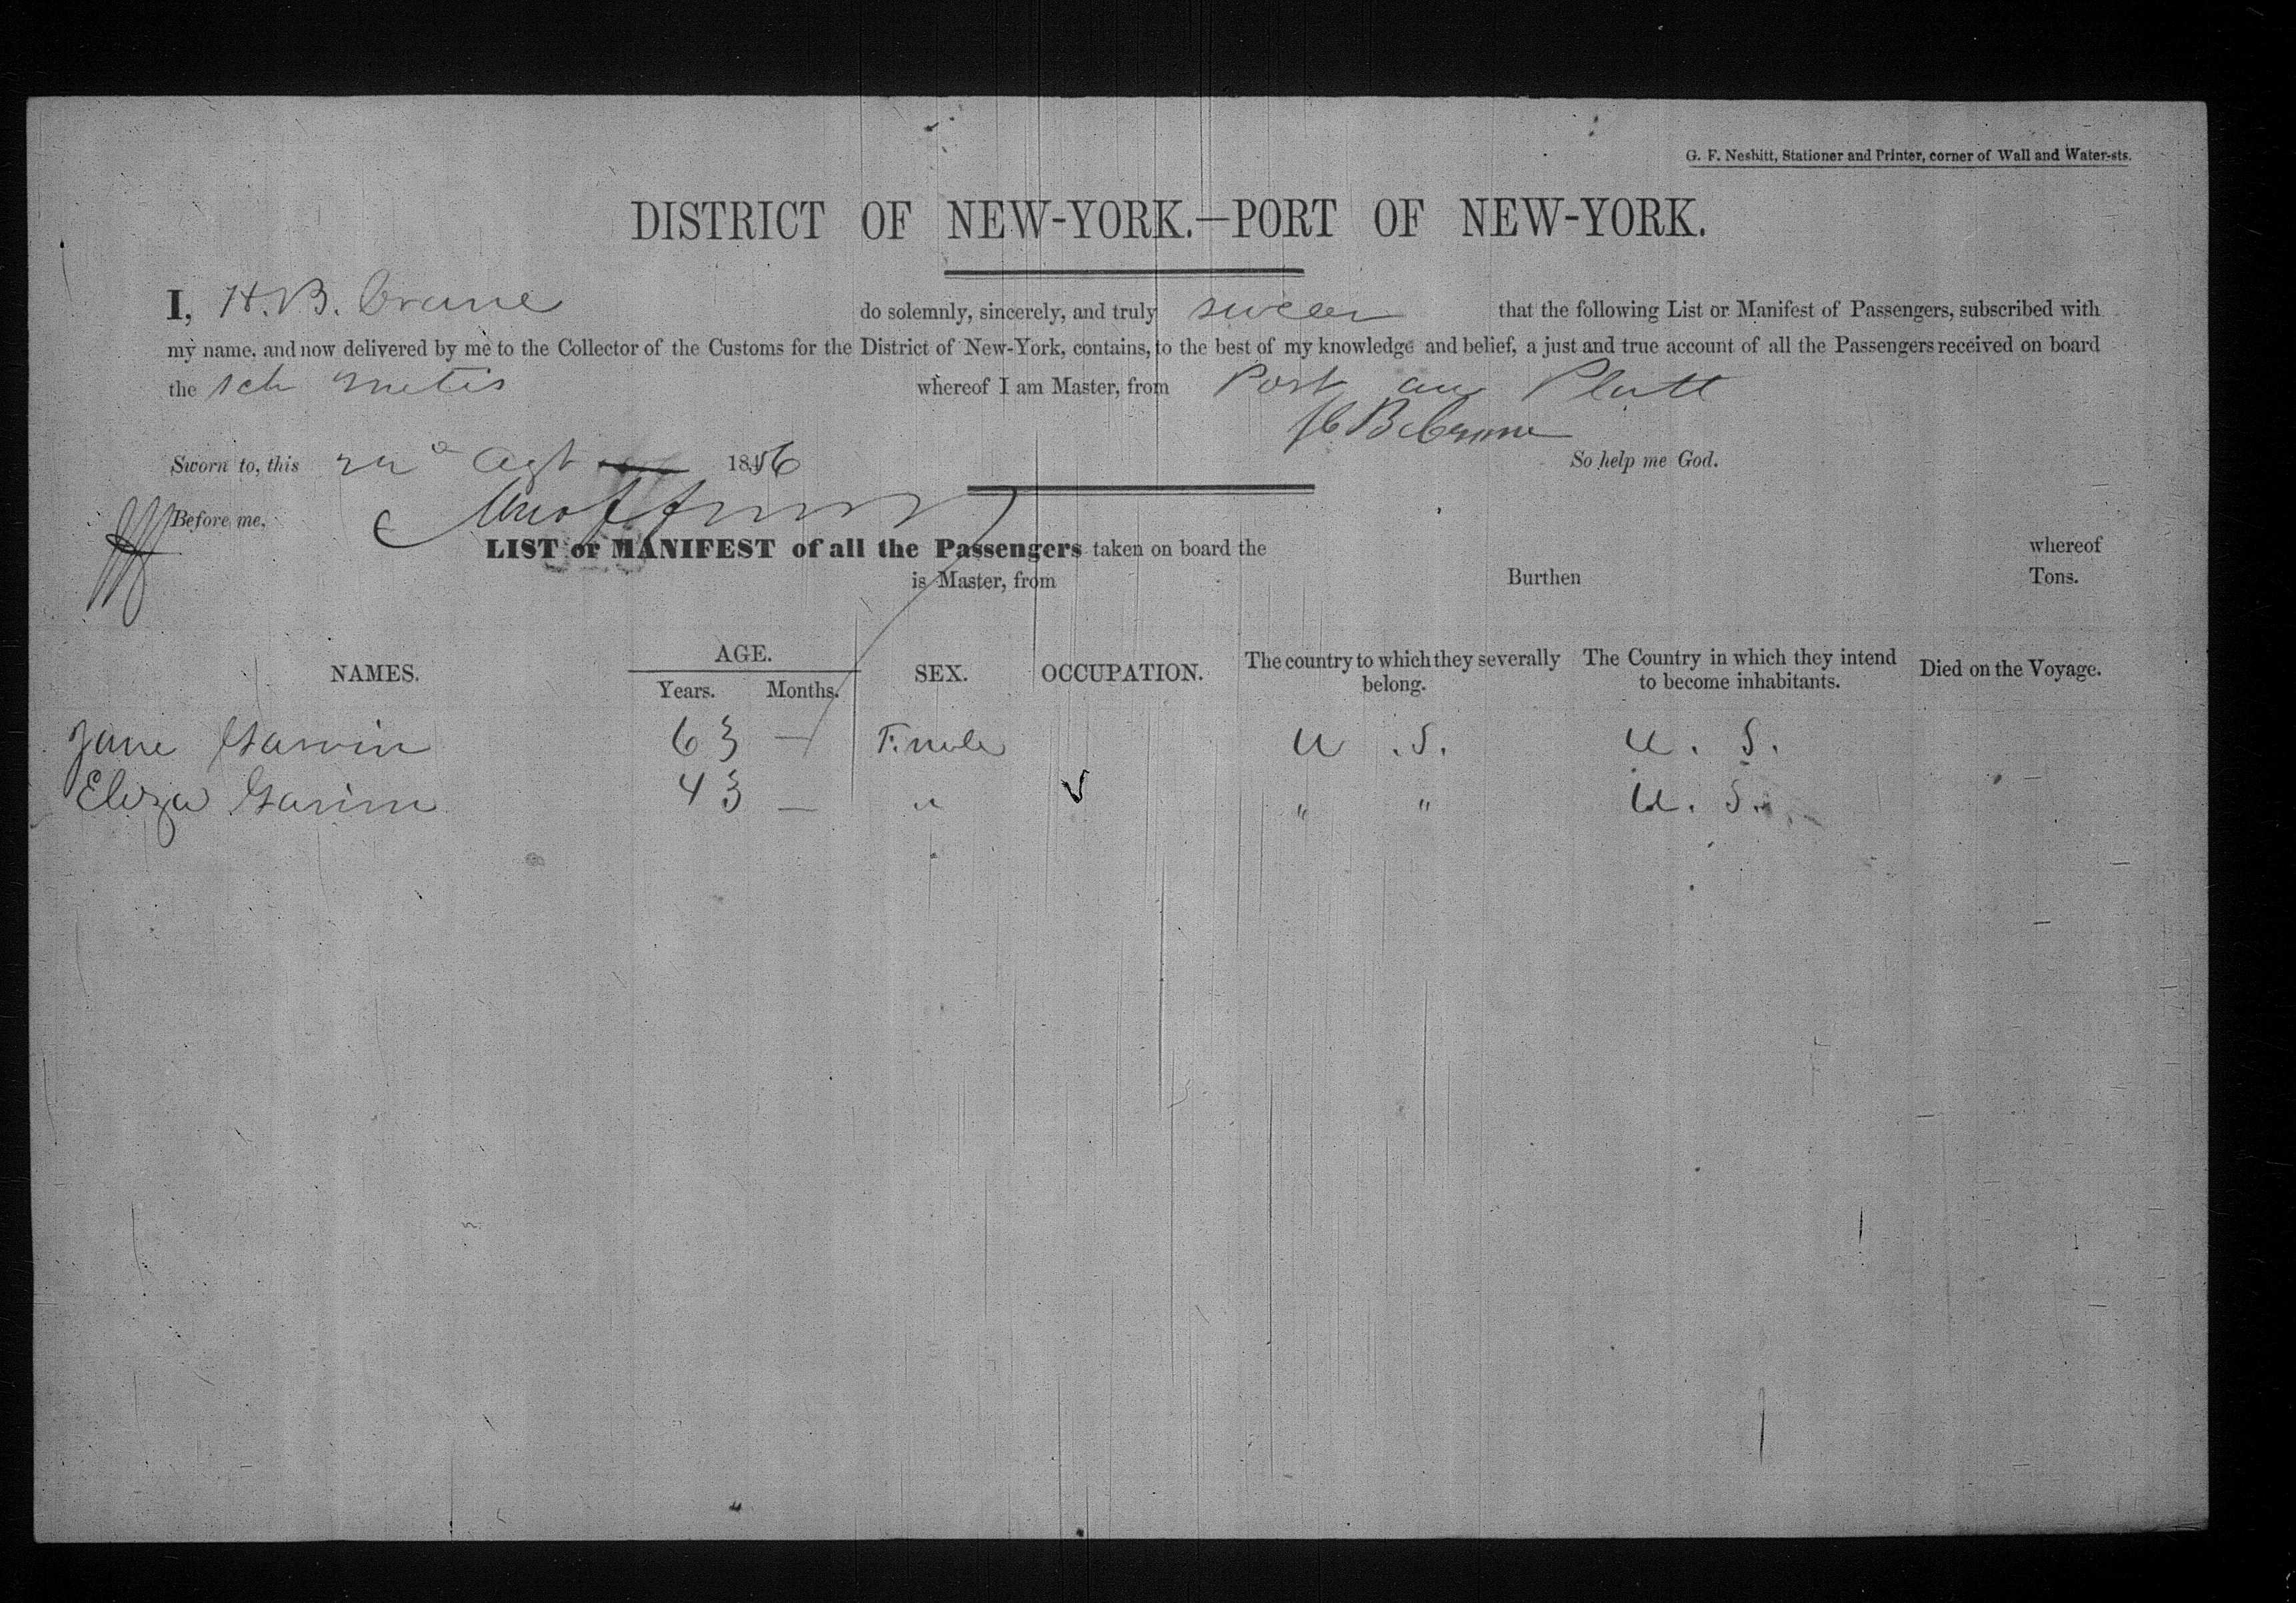 G. F. Nesbitt, Stationer and Printer, corner of Wall and Water-sts.
DISTRICT OF NEW-YORK.—PORT OF NEW-YORK.
I, H. B. Crane do solemnly, sincerely, and truly swear that the following List or Manifest of Passengers, subscribed with
my name, and now delivered by me to the Collector of the Customs for the District of New-York, contains, to the best of my knowledge and belief, a just and true account of all the Passengers received on board
the Sch Metis whereof I am Master, from Port au Platt
H B Crane
Sworn to, this 22d Agt 1846 So help me God.
Before me,
LIST or MANIFEST of all the Passengers taken on board the whereof
is Master, from Burthen Tons.
NAMES. AGE. SEX. OCCUPATION. The country to which they severally belong. The Country in which they intend to become inhabitants. Died on the Voyage.
Years. Months.
Jane Garvin 63 — Female U.S. U.S.
Eliza Garvin 43 — " " " U.S.